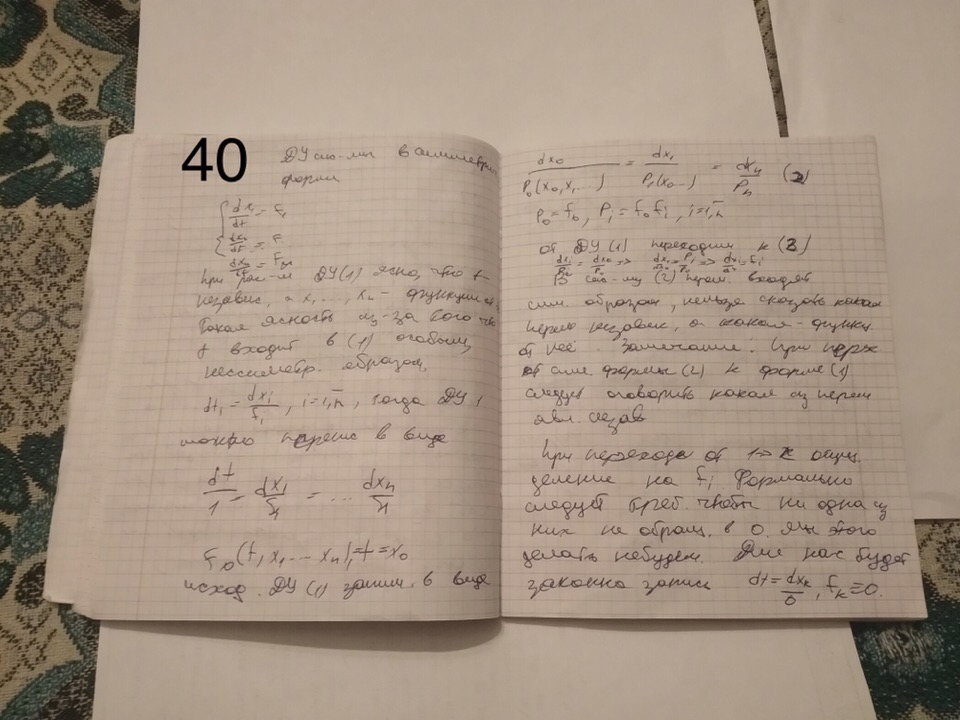 40
ДУ сис-мы в симметрич
форми
dx₁/dt = F₁
dx₂/dt = F
dxₙ/dt = Fₙ
при ДУ(1) ясно, что t-
независ, а x₁, ..., xₙ - функции от
Такая ясность из-за того что
t входит в (1) особым,
нессиметр. образом,
dt₁ = dxᵢ/fᵢ, i=1,n, тогда ДУ 1
можно перепис в виде
dt/1 = dx₁/f₁ = ... dxₙ/fₙ
F₀(t, x₁ ... xₙ) = t = x₀
исход. ДУ (1) запиш. в виде
dx₀/P₀(x₀, x₁, ...) = dx₁/P₁(x₀ ...) = dxₙ/Pₙ (2)
P₀ = f₀, Pᵢ = f₀fᵢ, i=1,n
от ДУ(1) переходим к (2)
dxᵢ/Pᵢ = dx₀/P₀ => dxᵢ/dx₀ = Pᵢ/P₀ => dxᵢ/dt = fᵢ
В сис-му (2) перем. входят
сим. образом, нельзя сказать какая
перем независ, а какая - функц.
от неё. Замечание: При перех
от сим формы (2) к форме (1)
следует оговорить какая из перем
явл. незав
При переходе от 1->2 осущ.
деление на fᵢ Формально
следует треб. чтобы ни одна из
них не обращ. в 0. мы этого
делать небудем. Для нас будет
законна запись dt = dxₖ/0, fₖ ≡ 0.